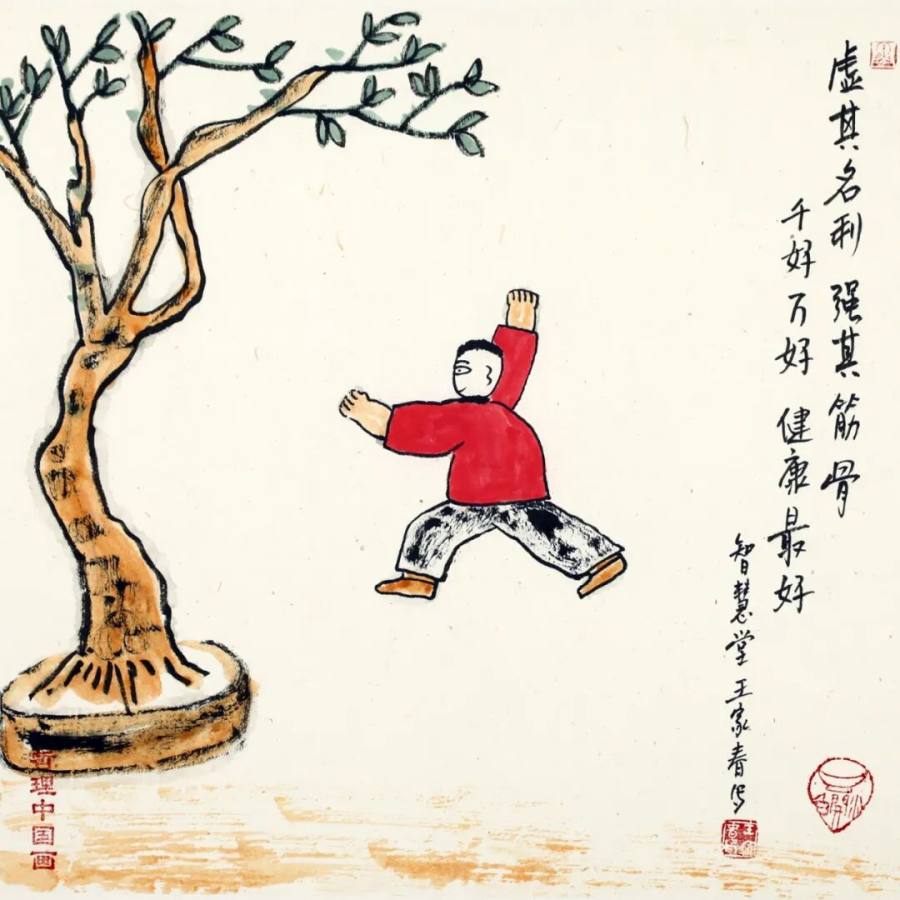 虚其名利 强其筋骨
千好万好 健康最好
智慧堂 王家春写
哲理中国画